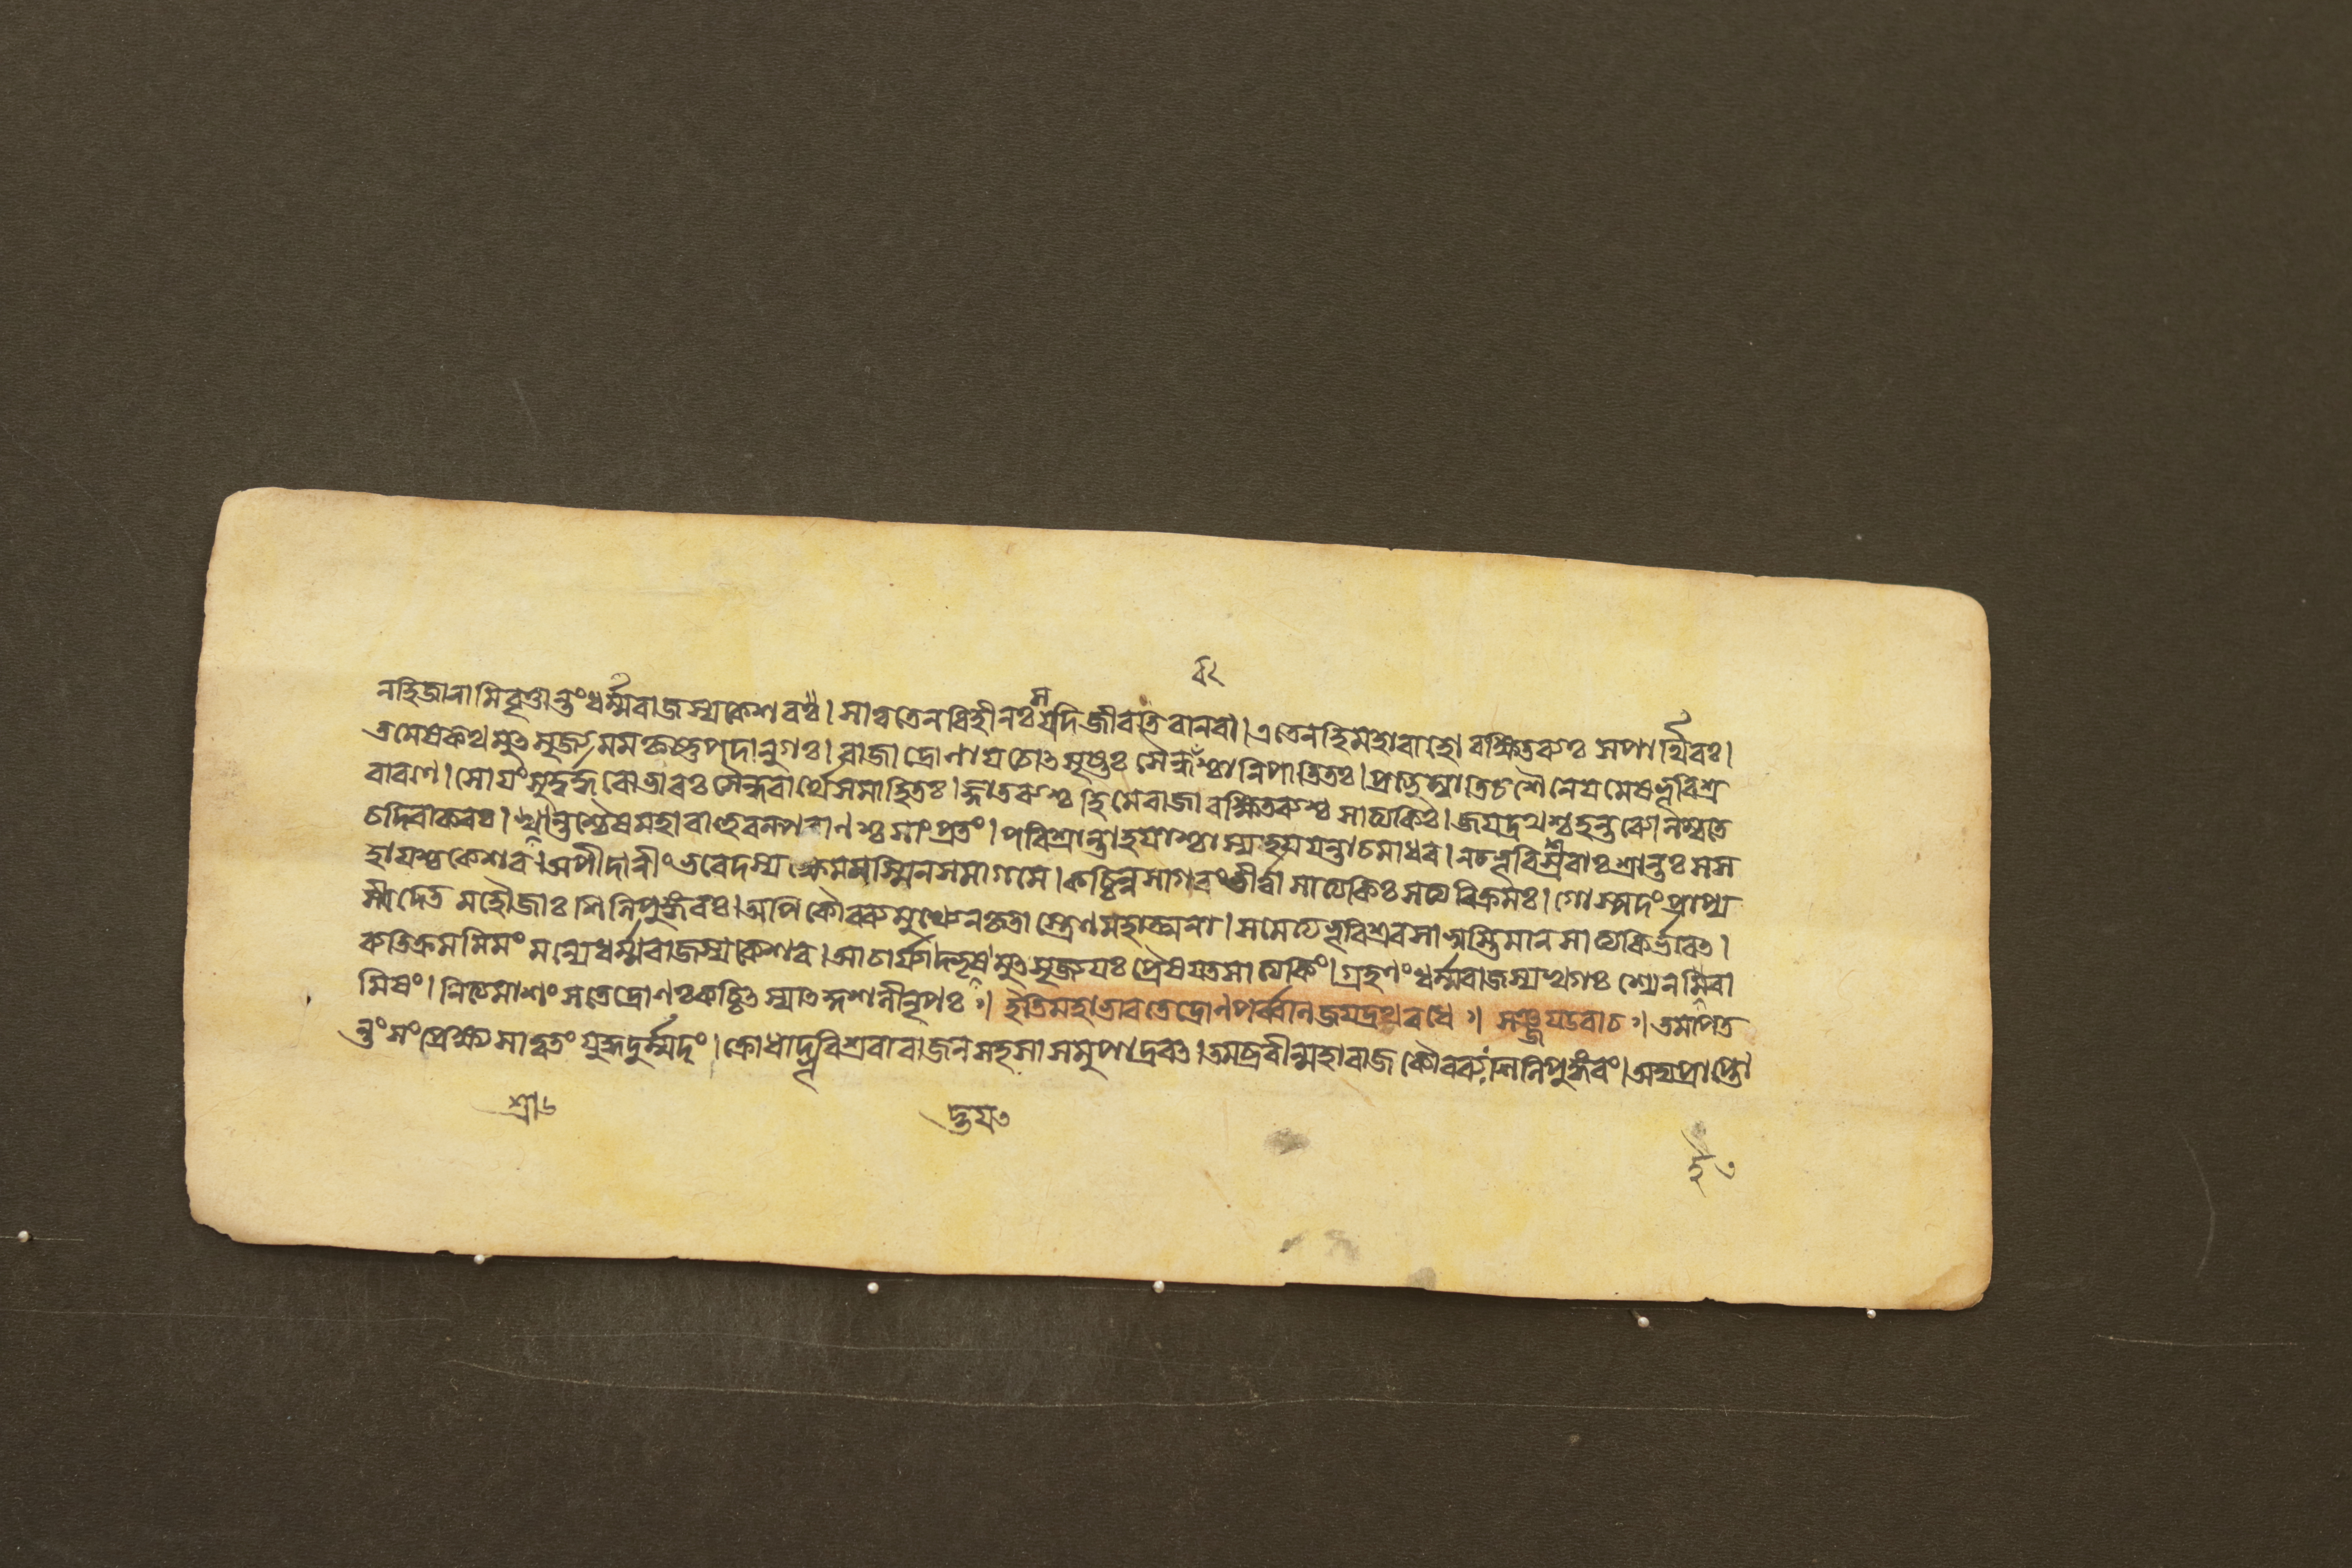 নহিজানামিবৃত্তান্তংধর্ম্মরাজস্যকেশবঃ। সাত্বতেনবিহীনঃ স যদিজীবতিবানবা। এতেনহিমহাবাহো রক্ষিতব্যঃ সপার্থিবঃ।
তমেষকথমুৎসৃজ্য মমকৃষ্ণপদানুগঃ। রাজা দ্রোণায়চোৎসৃষ্টঃ সৈন্ধবশ্চানিপাতিতঃ। প্রত্যুদ্যাতিচশৈনেয়মেষভূরিশ্র
বারণে। সোয়ংগুরুতরোভারঃ সৈন্ধবার্থেসমাহিতঃ। জ্ঞাতব্যশ্চহিমেরাজা রক্ষিতব্যশ্চসাত্যকিঃ। জয়দ্রথশ্চহন্তব্যোলম্বতে
চদিবাকরঃ। শ্রান্তশ্চৈষমহাবাহুরল্পপ্রাণশ্চসাংপ্রতং। পরিশ্রান্তাহয়াশ্চাস্যহয়যন্তাচমাধব। নচভূরিশ্রবাঃশ্রান্তঃ সস
হায়শ্চকেশব। অপীদানীংভবেদস্য ক্ষেমমস্মিনসমাগমে। কচ্চিন্নসাগরংতীর্ত্বাসাত্যকিঃ সত্যবিক্রমঃ। গোষ্পদংপ্রাপ্য
সীদেত মহৌজাঃ শিনিপুঙ্গবঃ। অপি কৌরবমুখ্যেনকৃতাস্ত্রেণমহাত্মনা। সমেত্যভূরিশ্রবসাস্বস্তিমানসাত্যকির্ভবেৎ।
ব্যতিক্রমমিমং মন্যেধর্ম্মরাজস্যকেশব। আচার্য্যাদ্ভয়মুৎসৃজ্যয়ঃ প্রেষয়তিসাত্যকিং। গ্রহণংধর্ম্মরাজস্যখগঃ শ্যেনইবা
মিষং। নিত্যমাশংসতেদ্রোণঃকচ্চিৎস্যাৎকুশলীনৃপঃ ঃ। ইতিমহাভারতেদ্রোণপর্ব্বণিজয়দ্রথবধে ঃ। সঞ্জয়উবাচ ঃ। তমাপত
ন্তংসংপ্রেক্ষ্য সাত্বতং যুদ্ধদুর্ম্মদং। ক্রোধাদ্ভূরিশ্রবারাজনসহসাসমুপাদ্রবৎ। তমব্রবীন্মহারাজ কৌরব্যঃশিনিপুঙ্গবং। অদ্যপ্রাপ্তৌ